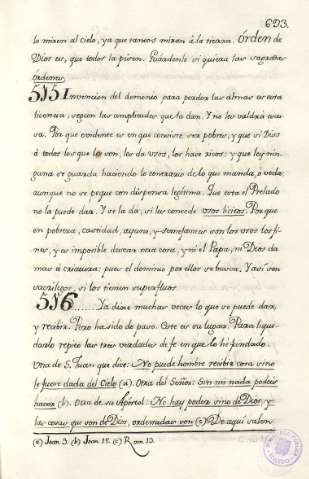 693.
lo miren al cielo, ya que tantos miran á la tierra. Órden de
Dios es, que todos la pisen. Guárdenle si quieren las sagradas
órdenes.
515 Invencion del demonio para perder las almas es esta
licencia, segun las amplitudes que la dan. Y no les valdrá excu
sa. Por que conviene es en que consiste ser pobres, y que si Dios
á todos los que lo son, les da usos, los hace ricos: y que les nin
guna se guarda haciendo lo contrario de lo que manda, o veda,
aunque no se peque con dispensa legítima. Que esta el Prelado
no la puede dar. Y se la da, si les concede usos lícitos. Por que
en pobreza, castidad, ayuno, y semejantes son los usos los fi
nes, y es imposible que sean otra cosa, y ni el Papa, ni Dios da
mas á criaturas: pues el dominio por ellos se busca. Y así son
sacrílegos, si los tienen superfluos.
516 Ya dixe muchas veces lo que se puede dar,
y recibir. Pero ha sido de paso. Este es su lugar. Para liqui
darlo repito las tres verdades de fe en que lo he fundado.
Una de S. Juan que dice: No puede hombre recibir cosa sino
le fuere dada del Cielo (a). Otra del Señor: Sin mi nada podeis
hacer (b). Otra de su Apóstol: No hay poder sino de Dios, y
las cosas que son de Dios, ordenadas son (c). De aquí salen
(a) Joan 3. (b) Joan 15. (c) Rom 13.